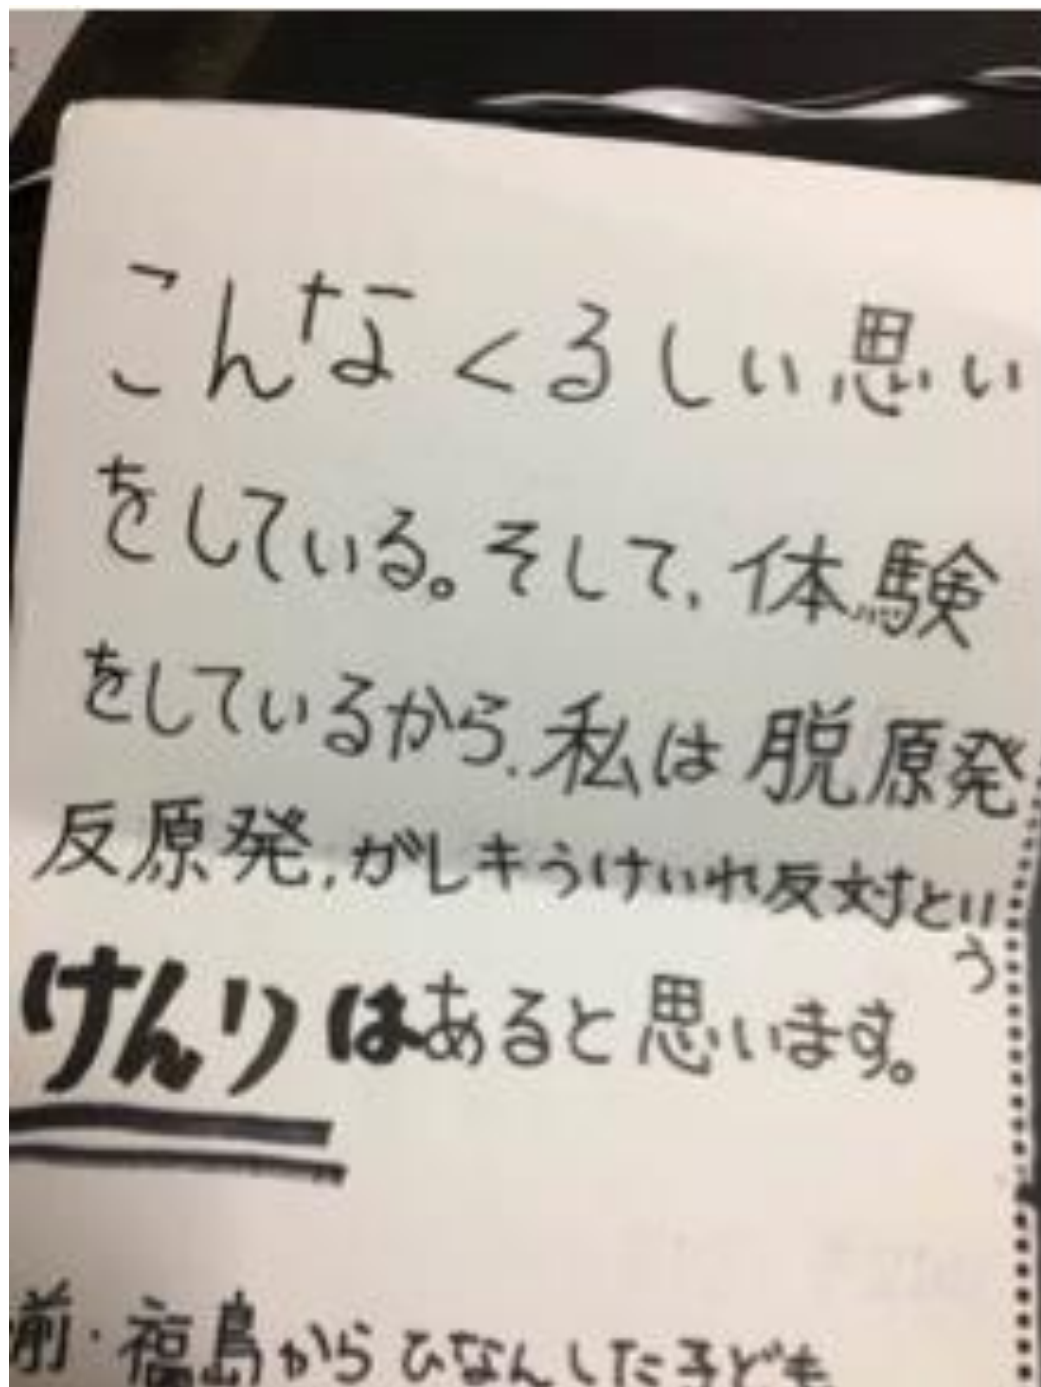 こんなくるしい思い
をしている。そして、体験
をしているから、私は脱原発
反原発、がレキうけいれ反対という
けんりはあると思います。
前・福島からひなんした子ども